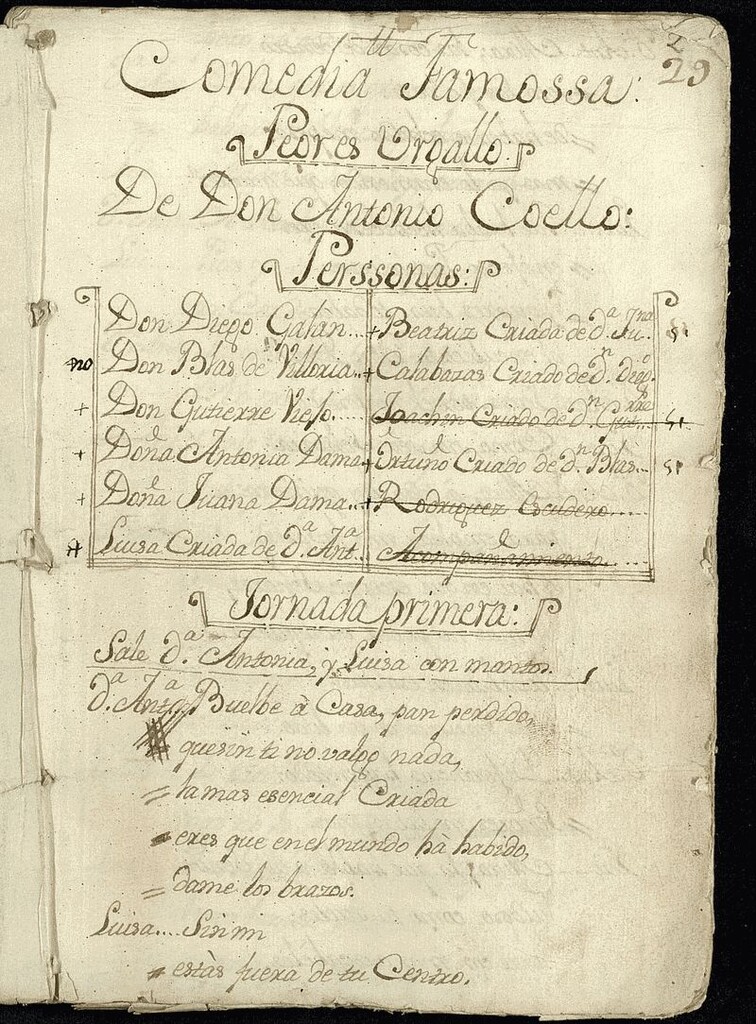 1
29
Comedia Famossa:
Peor es Urgallo:
De Don Antonio Coello:
Perssonas:
Don Diego Galan.. + Beatriz Criada de d.ª Ju.ⁿᵃ si
no Don Blas de Villoria.. + Calabazas Criado de d.ⁿ Dieg.º
+ Don Gutierre Viejo...... Joachin Criado de d.ⁿ Gut.ʳʳᵉ si
+ Doña Antonia Dama + Ortuño Criado de d.ⁿ Blas... si
+ Doña Juana Dama.. + Rodriguez Escudero......
+ Luisa Criada de D.ª Ant.ª.. Acompañamiento......
Jornada primera:
Sale d.ª Antonia, y Luisa con mantos.
d.ª Ant.ª Buelbe à Casa, pan perdido,
que sin ti no valgo nada,
= la mas esencial Criada
= eres que en el mundo hà habido,
= dame los brazos.
Luisa.... Sin mi
= estàs fuera de tu Centro.